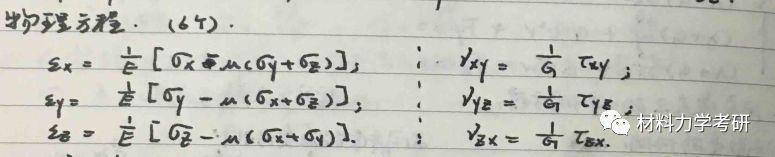 物理方程. (6个).
εx = 1/E [σx - μ(σy+σz)]; : γxy = 1/G τxy;
εy = 1/E [σy - μ(σx+σz)]; : γyz = 1/G τyz;
εz = 1/E [σz - μ(σx+σy)]. : γzx = 1/G τzx.
材料力学考研